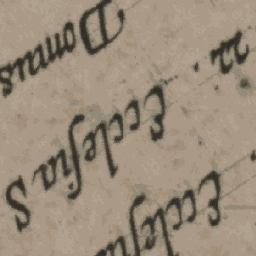 Eccleſia
22. Eccleſia S
Domus